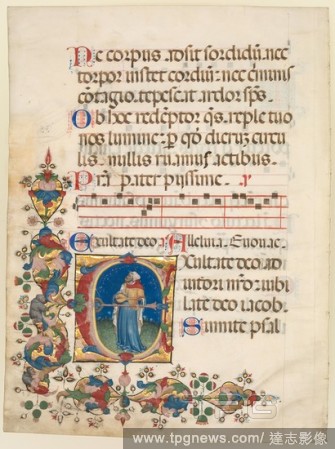 Ne corpus adsit sordidū. nec
torpor instet cordiū: nec criminis
contagio. tepescat. ardor sp̄s.
Ob hoc redēptor q̄s. reple tuo
nos lumine: p̄ q̄d dierū circu
lis. nullis ruamus actibus.
Pr̄a. pater pijssime.
Exultate deo Alleluia. Euouae.
Exultate deo ad
iutori nr̄o: iubi
late deo iacob.
Sumite psal
www.tpgnews.com/達志影像